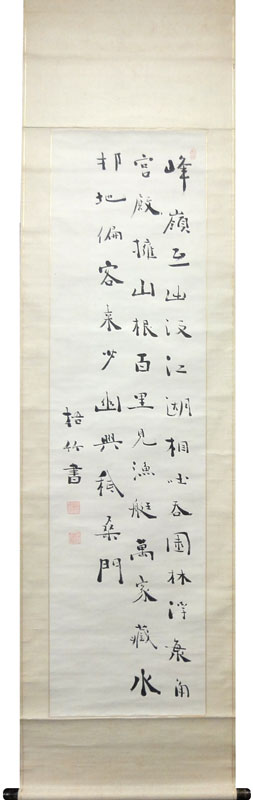 峰嶺互出没江湖相吐吞園林浮角
宮殿擁山根百里見漁艇萬家藏水
邨地偏客来少幽興秖桑門
梧竹書